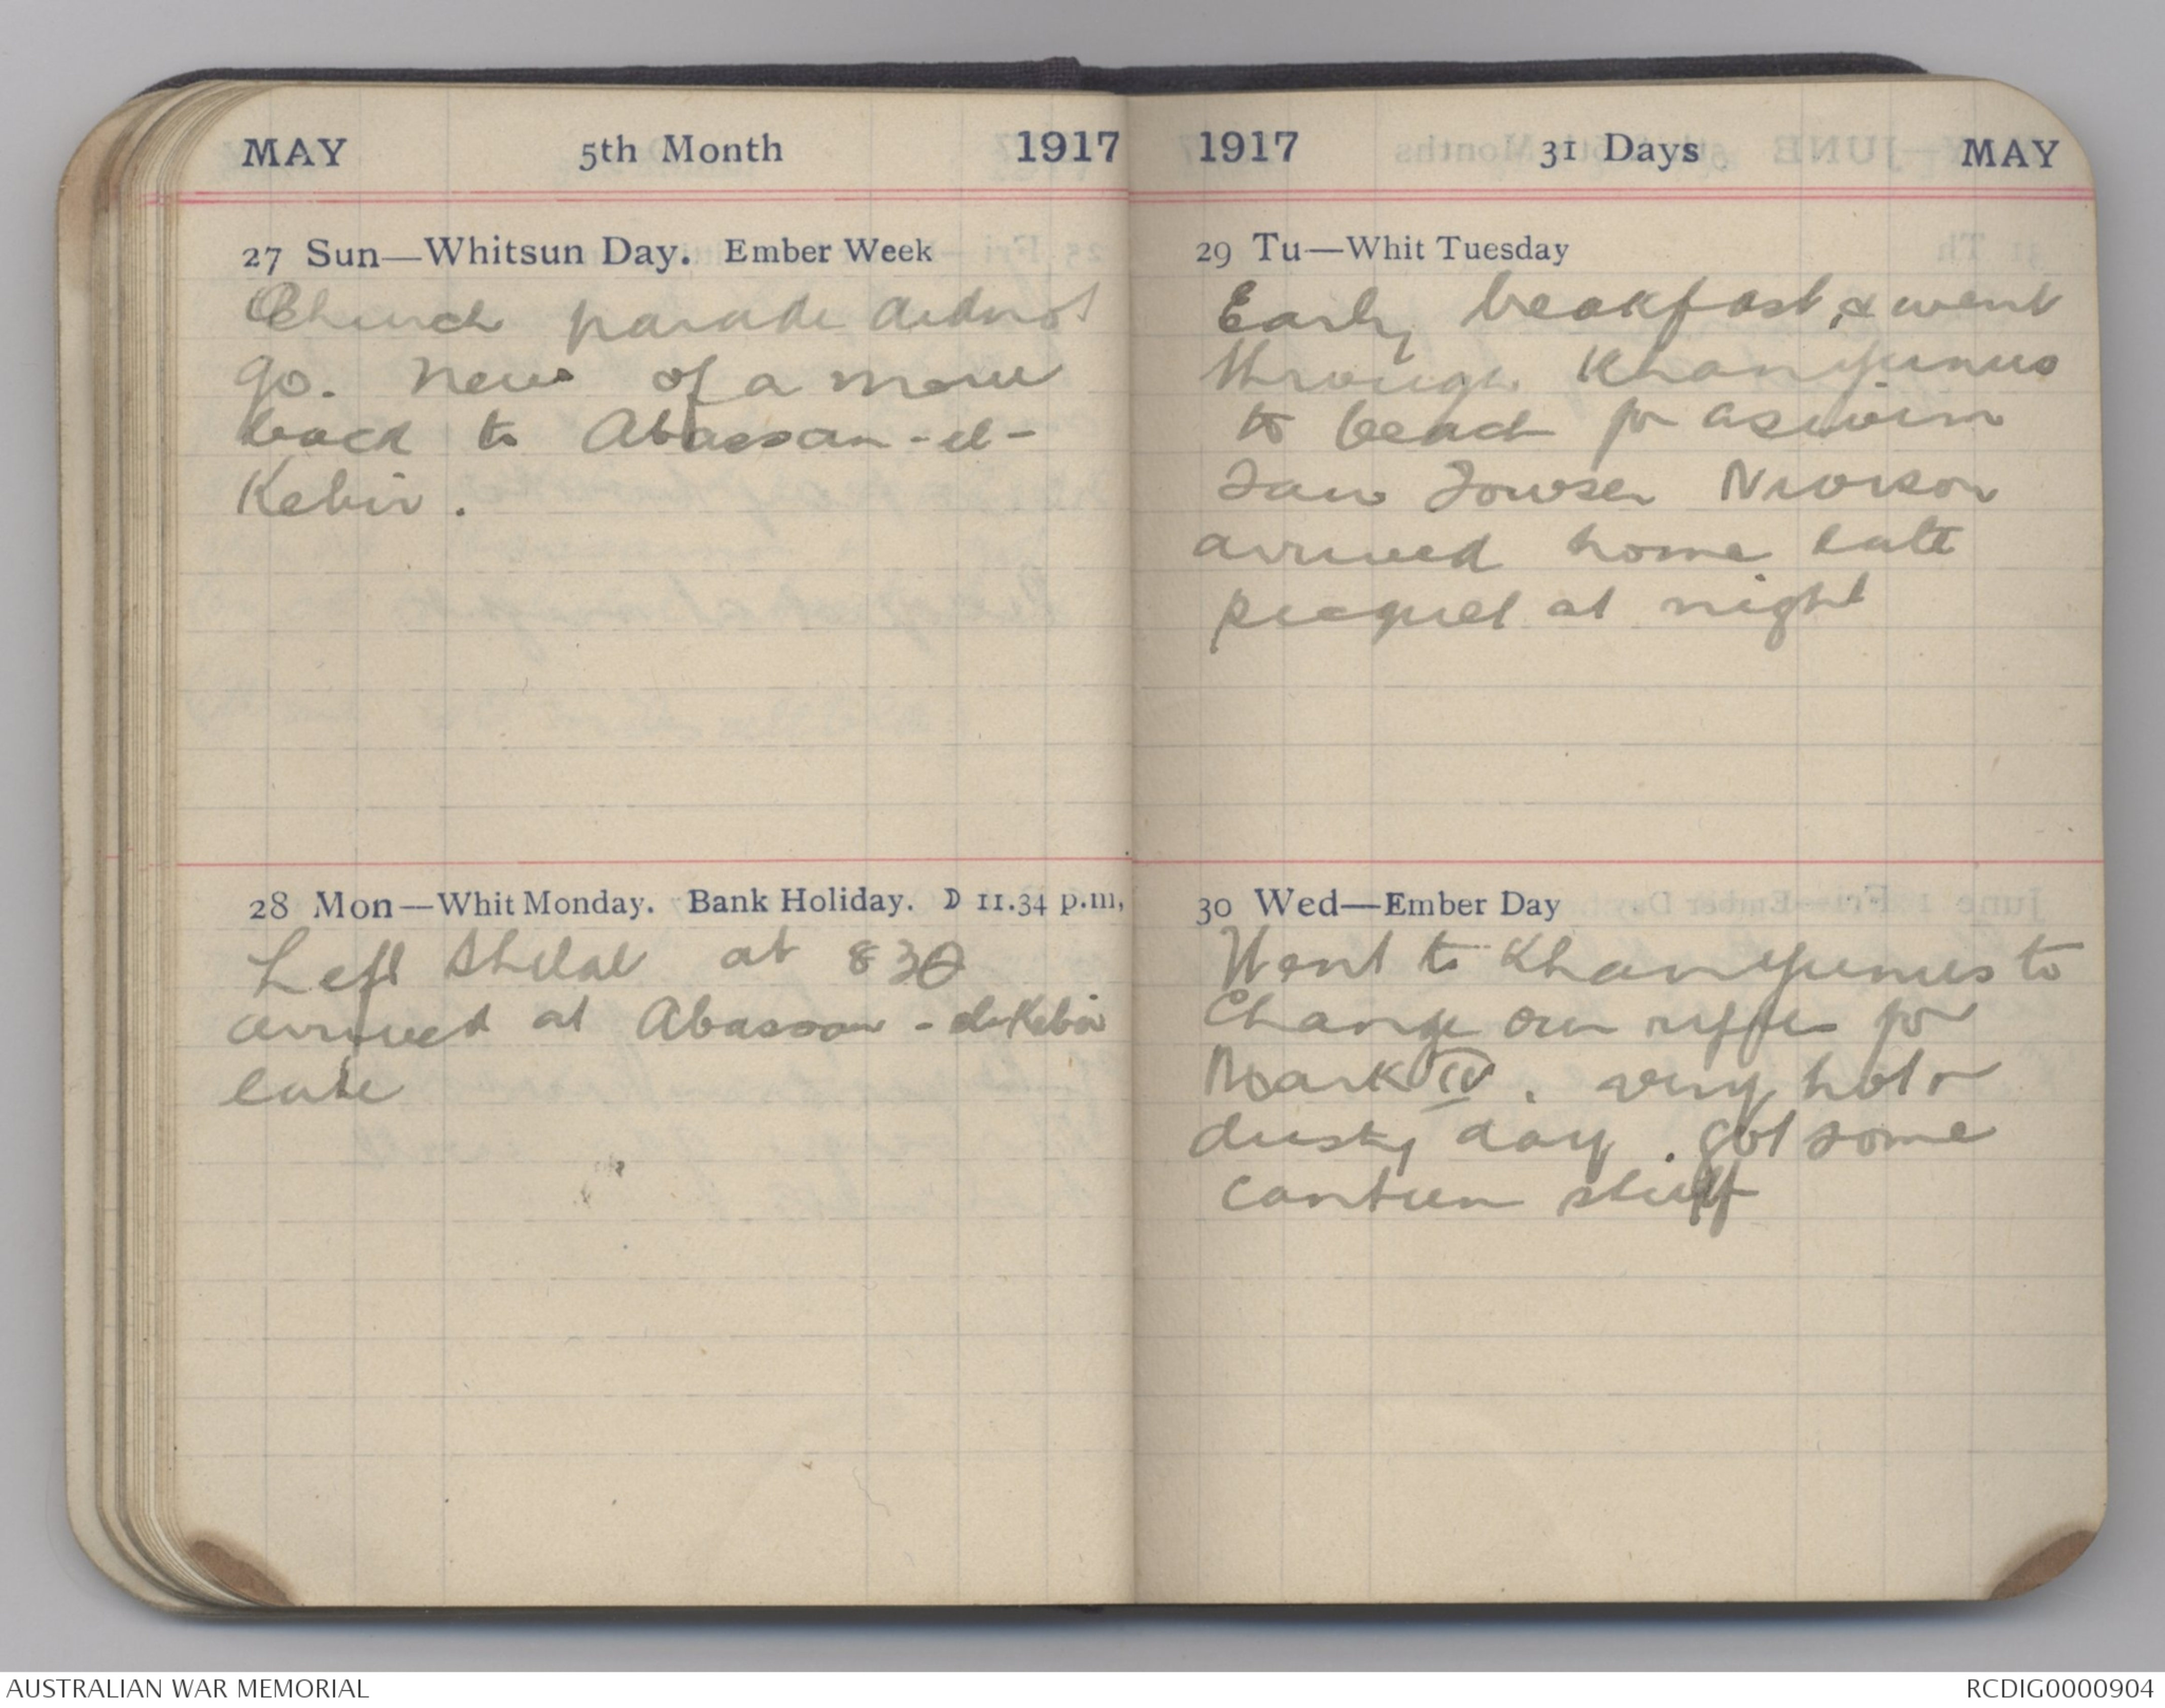 MAY 5th Month 1917
27 Sun—Whitsun Day. Ember Week
Church parade didnot
go. News of a move
back to Abassan-el-
Kebir.
28 Mon—Whit Monday. Bank Holiday. D 11.34 p.m,
Left Shelal at 830
arrived at Abassan - el-Kebir
late
1917 31 Days MAY
29 Tu—Whit Tuesday
Early beakfast, & went
through Khanyunus
to beach for aswim
Saw Towser
arrived home late
picquet at night
30 Wed—Ember Day
Went to Khanyunus to
Change our for
Mark IV. very hot &
dusty day. got some
canteen stuff
AUSTRALIAN WAR MEMORIAL
RCDIG0000904